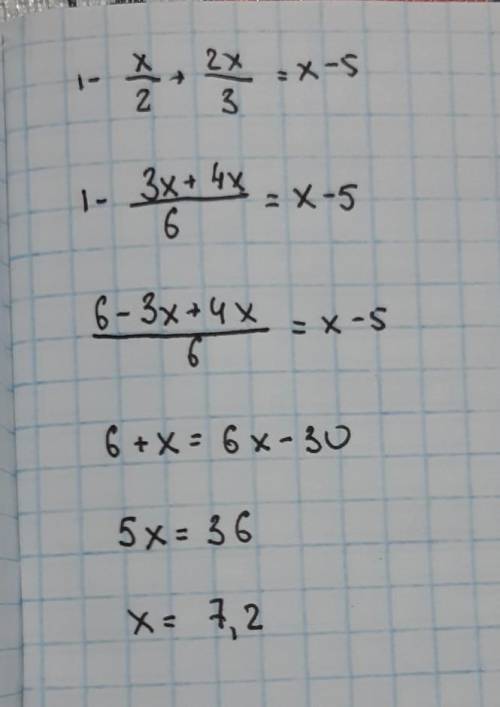 1 - x/2 + 2x/3 = x - 5
1 - (3x + 4x)/6 = x - 5
(6 - 3x + 4x)/6 = x - 5
6 + x = 6x - 30
5x = 36
x = 7,2